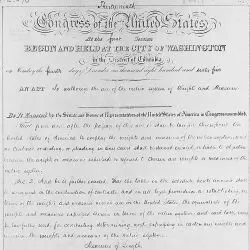 Thirty-ninth
Congress of the United States,
At the first Session
BEGUN AND HELD AT THE CITY OF WASHINGTON
in the District of Columbia
on Monday the fourth day of December one thousand eight hundred and sixty-five
AN ACT To authorize the use of the metric system of Weights and Measures
Be It Enacted by the Senate and House of Representatives of the United States of America in Congress assembled,
That from and after the passage of this act it shall be lawful throughout the
United States of America to employ the weights and measures of the metric system, and
no contract or dealing, or pleading in any court shall be deemed invalid or liable to objection
because the weights or measures expressed or referred to therein are weights or measures of the
metric system.
Sec. 2. And be it further enacted, That the tables in the schedule hereto annexed shall
be recognized in the construction of contracts, and in all legal proceedings, as establishing, in
terms of the weights and measures now in use in the United States, the equivalents of the
weights and measures expressed therein in terms of the metric system; and said tables may
be lawfully used for computing, determining, and expressing in customary weights and
measures the weights and measures of the metric system.
Measures of Length